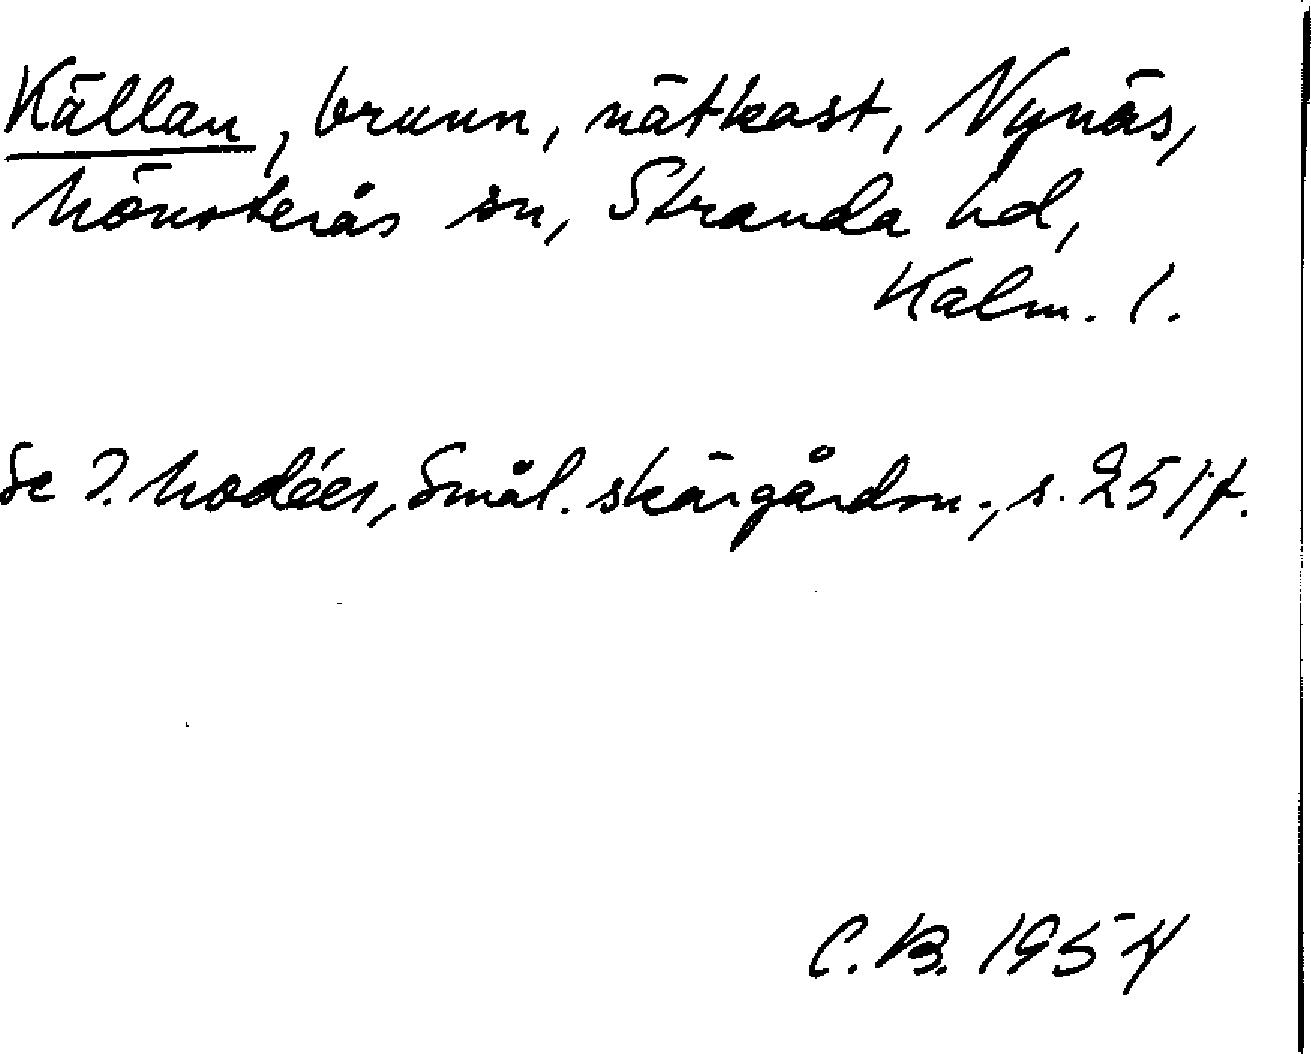 Källan, brunn, nätkast, Nynäs,
Mönsterås sn, Stranda hd,
Kalm. l.
Se I. Modéer, Smål. skärgårdsn., s. 251 f.
C.B. 1954